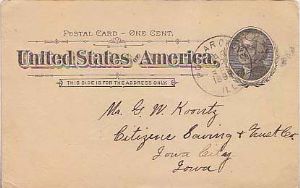 POSTAL CARD - ONE CENT.
United States of America.
THIS SIDE IS FOR THE ADDRESS ONLY.
ILL.
Mr. G. W. Koontz
Citizens Saving & Trust Co.
Iowa City
Iowa